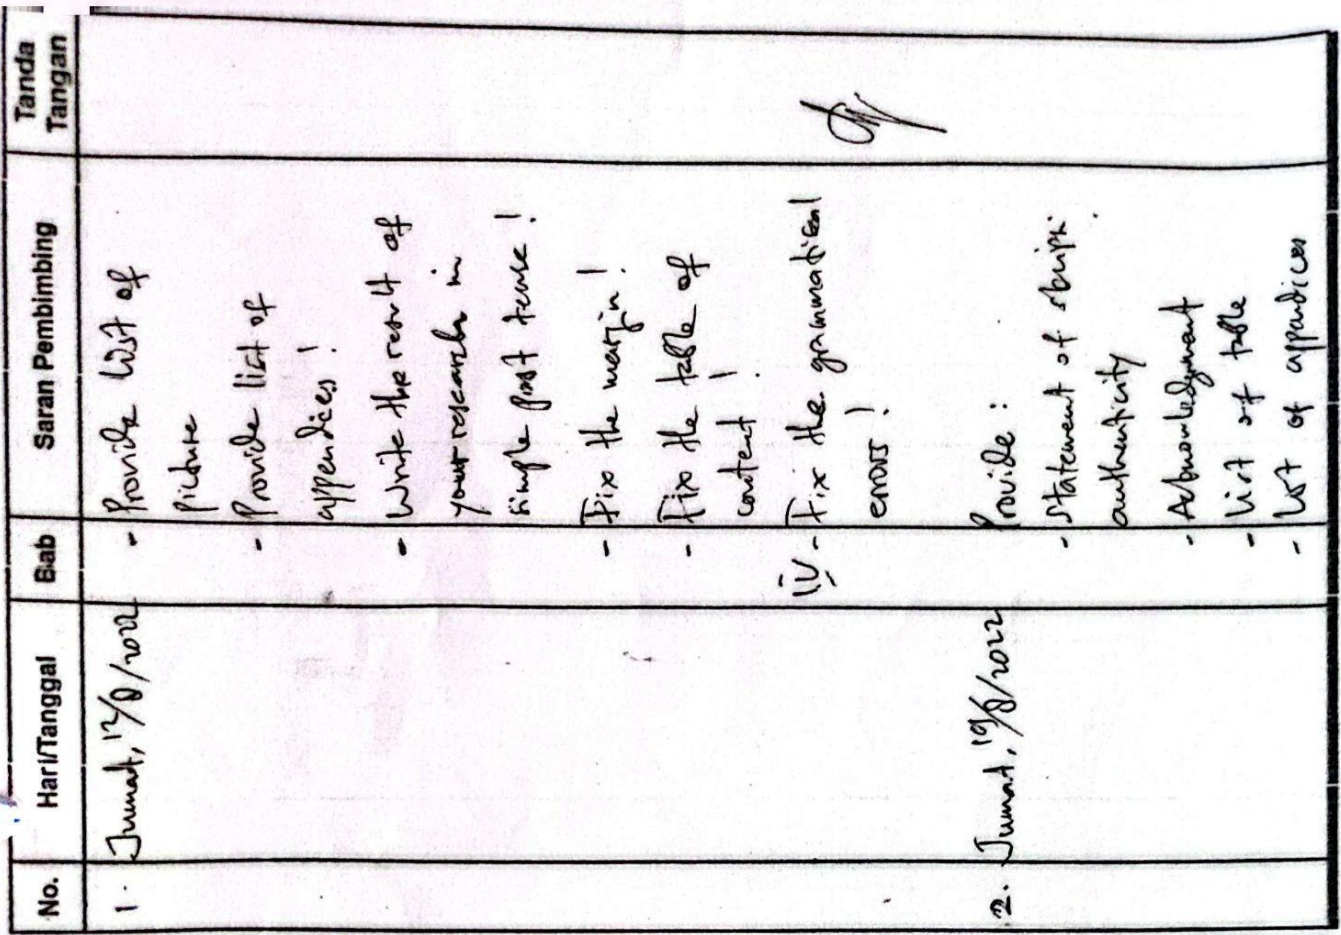 No. Hari/Tanggal Bab Saran Pembimbing Tanda Tangan
1. Jumat, 12/8/2022 - Provide list of
picture
- Provide list of
appendices!
- Write the result of
your research in
simple past tense!
- Fix the margin!
- Fix the table of
content!
IV - Fix the grammatical
errors!
2. Jumat, 19/8/2022 Provide:
- Statement of skripsi
authenticity
- Acknowledgment
- List of table
- List of appendices